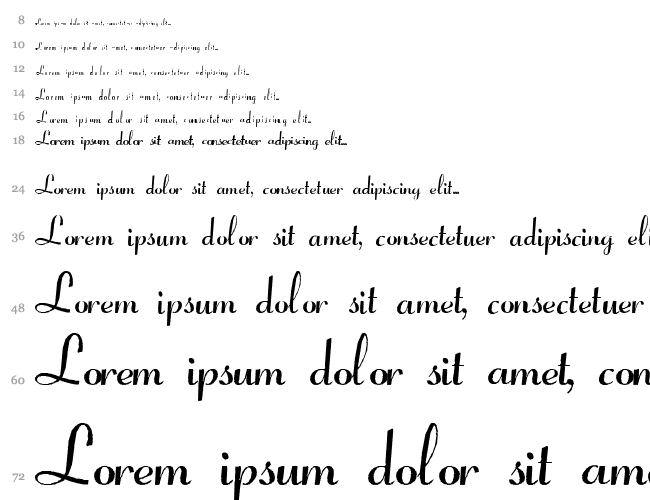 8 Lorem ipsum dolor sit amet, consectetuer adipiscing elit...
10 Lorem ipsum dolor sit amet, consectetuer adipiscing elit...
12 Lorem ipsum dolor sit amet, consectetuer adipiscing elit...
14 Lorem ipsum dolor sit amet, consectetuer adipiscing elit...
16 Lorem ipsum dolor sit amet, consectetuer adipiscing elit...
18 Lorem ipsum dolor sit amet, consectetuer adipiscing elit...
24 Lorem ipsum dolor sit amet, consectetuer adipiscing elit...
36 Lorem ipsum dolor sit amet, consectetuer adipiscing eli
48 Lorem ipsum dolor sit amet, consectetuer
60 Lorem ipsum dolor sit amet, con
72 Lorem ipsum dolor sit ame